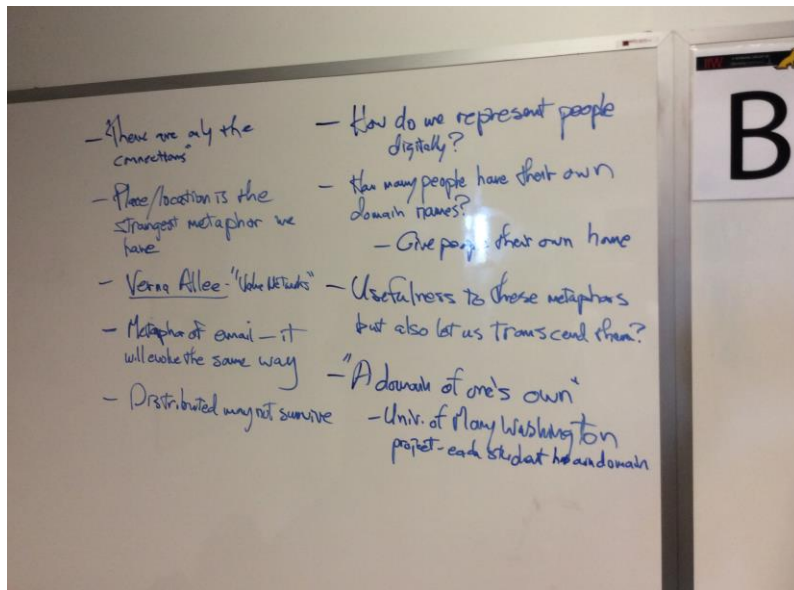 — "There are only the
connections"
— Place/location is the
strangest metaphor we
have
— Verna Allee - "Value Networks"
— Metaphor of email — it
will evolve the same way
— Distributed may not survive
— How do we represent people
digitally?
— How many people have their own
domain names?
— Give people their own home
— Usefulness to these metaphors
but also let us transcend them?
— "A domain of one's own"
— Univ. of Mary Washington
project - each student has own domain
IIW
B